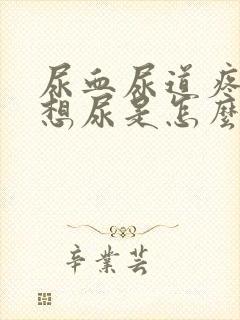 尿血尿道疼
想尿是怎麼
辛業芸